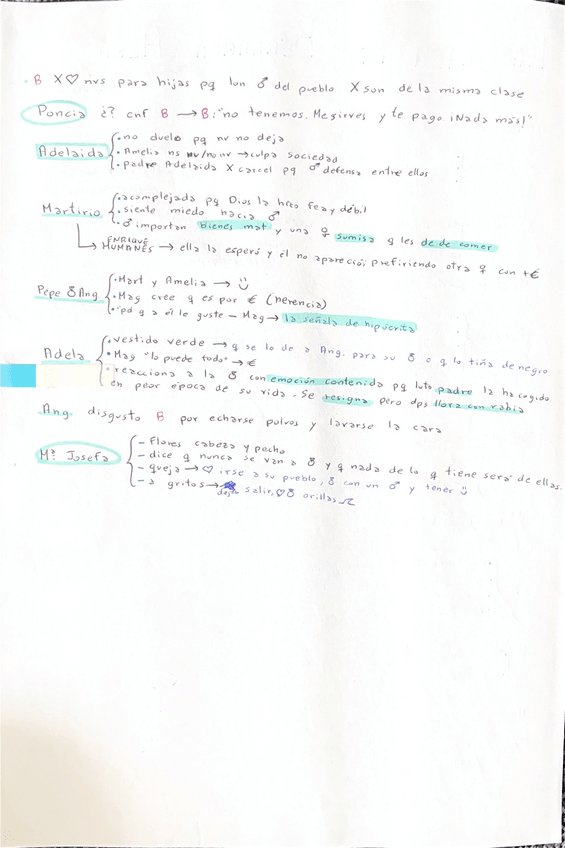 · B X♡ nvs para hijas pq lon ♂ del pueblo X son de la misma clase
Poncia ¿? cnf B → B: "no tenemos. Me sirves y te pago ¡Nada más!"
• no duelo pq nv no deja
Adelaida • Amelia ns nv/no nv → culpa sociedad
• padre Adelaida X carcel pq ♂ defensa entre ellos
• acomplejada pq Dios la hizo fea y débil
Martirio • siente miedo hacia ♂
• ♂ importan bienes mat y una ♀ sumisa q les de de comer
ENRIQUE HUMANES → ella la esperó y él no apareció; prefiriendo otra ♀ con +€
• Mart y Amelia → ü
Pepe ⚭ Ang • Mag cree q es por € (herencia)
• "pd q a él le guste – Mag → la señala de hipócrita
• vestido verde → q se lo de a Ang. para su ⚭ o q lo tiña de negro
Adela • Mag "lo puede todo" → €
• reacciona a la ⚭ con emoción contenida pq luto padre la ha cogido
en peor época de su vida. Se resigna pero dps llora con rabia
Ang. disgusto B por echarse polvos y lavarse la cara
– flores cabeza y pecho
Mª Josefa – dice q nunca se van a ⚭ y q nada de lo q tiene será de ellas.
– queja → ♡ irse a su pueblo, ⚭ con un ♂ y tener ü
– a gritos → dejen salir, ♡⚭ orillas